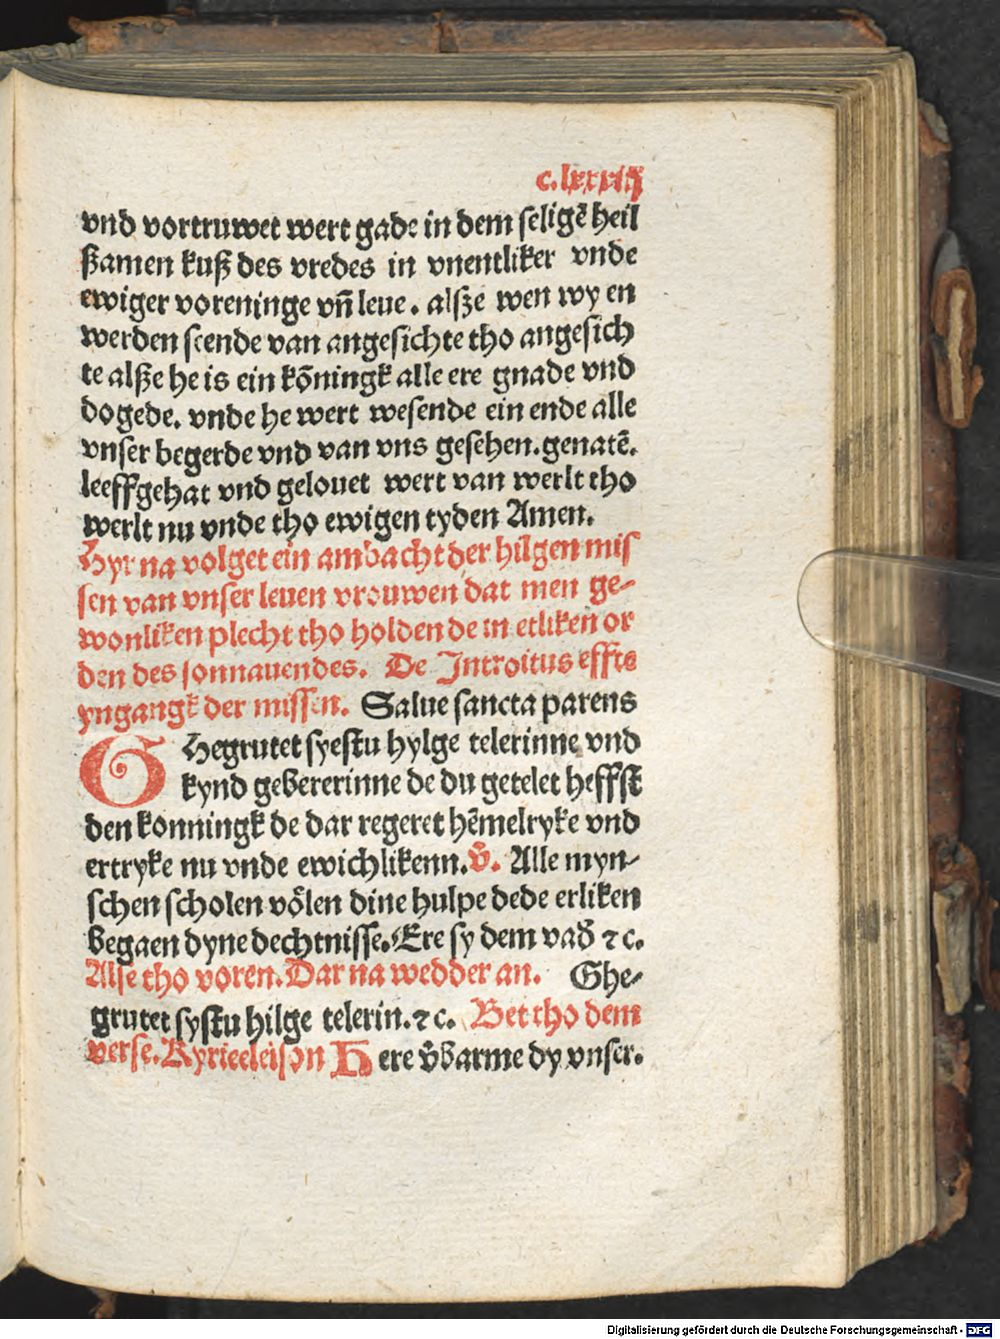 c.lxxxiij
vnd vortruwet wert gade in dem seligē heil
ßamen kuß des vredes in vnentliker vnde
ewiger voreninge vñ leue. alsze wen wy en
werden seende van angesichte tho angesich
te alsze he is ein kōningk alle ere gnade vnd
dogede. vnde he wert wesende ein ende alle
vnser begerde vnd van vns gesehen. genatē.
leeffgehat vnd gelouet wert van werlt tho
werlt nu vnde tho ewigen tyden Amen.
Hyr na volget ein ambacht der hilgen mis
sen van vnser leuen vrouwen dat men ge-
wonliken plecht tho holden de in etliken or
den des sonnauendes. De Introitus effte
yngangk der missen. Salue sancta parens
GHegrutet syestu hylge telerinne vnd
kynd gebererinne de du getelet heffst
den konningk de dar regeret hēmelryke vnd
ertryke nu vnde ewichlikenn. v̄. Alle myn-
schen scholen vȯlen dine hulpe dede erliken
begaen dyne dechtnisse. Ere sy dem vad̄ ⁊c.
Alse tho voren. Dar na wedder an. Ghe-
grutet systu hilge telerin. ⁊c. Bet tho dem
verse. Kyrieeleison Here v̄barme dy vnser.
Digitalisierung gefördert durch die Deutsche Forschungsgemeinschaft - DFG